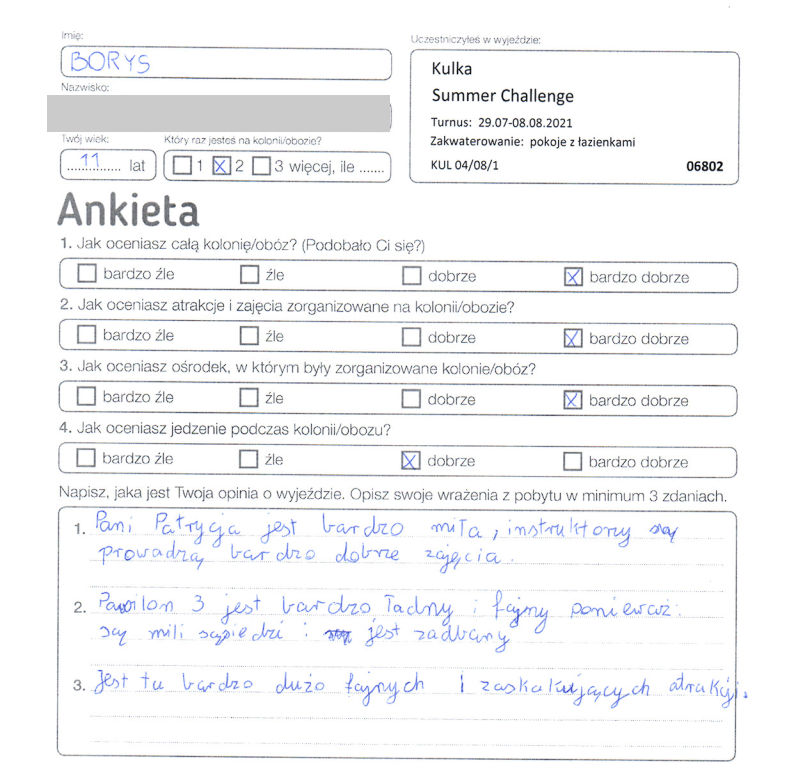 Imię:
BORYS
Nazwisko:
Twój wiek:
11 lat
Który raz jesteś na kolonii/obozie?
1 2 3 więcej, ile .......
Uczestniczyłeś w wyjeździe:
Kulka
Summer Challenge
Turnus: 29.07-08.08.2021
Zakwaterowanie: pokoje z łazienkami
KUL 04/08/1 06802
Ankieta
1. Jak oceniasz całą kolonię/obóz? (Podobało Ci się?)
bardzo źle źle dobrze bardzo dobrze
2. Jak oceniasz atrakcje i zajęcia zorganizowane na kolonii/obozie?
bardzo źle źle dobrze bardzo dobrze
3. Jak oceniasz ośrodek, w którym były zorganizowane kolonie/obóz?
bardzo źle źle dobrze bardzo dobrze
4. Jak oceniasz jedzenie podczas kolonii/obozu?
bardzo źle źle dobrze bardzo dobrze
Napisz, jaka jest Twoja opinia o wyjeździe. Opisz swoje wrażenia z pobytu w minimum 3 zdaniach.
1. Pani Patrycja jest bardzo miła, instruktorzy
prowadzą bardzo dobrze zajęcia.
2. Pawilon 3 jest bardzo ładny i fajny ponieważ:
są mili sąsiedzi i jest zadbany
3. Jest tu bardzo dużo fajnych i zaskakujących atrakcji.